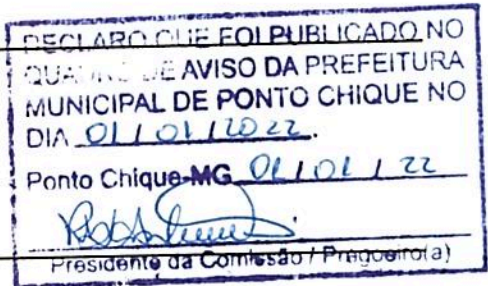 DECLARO QUE FOI PUBLICADO NO
QUADRO DE AVISO DA PREFEITURA
MUNICIPAL DE PONTO CHIQUE NO
DIA 01/01/2022.
Ponto Chique-MG 01/01/22
Presidente da Comissão / Pregoeiro(a)